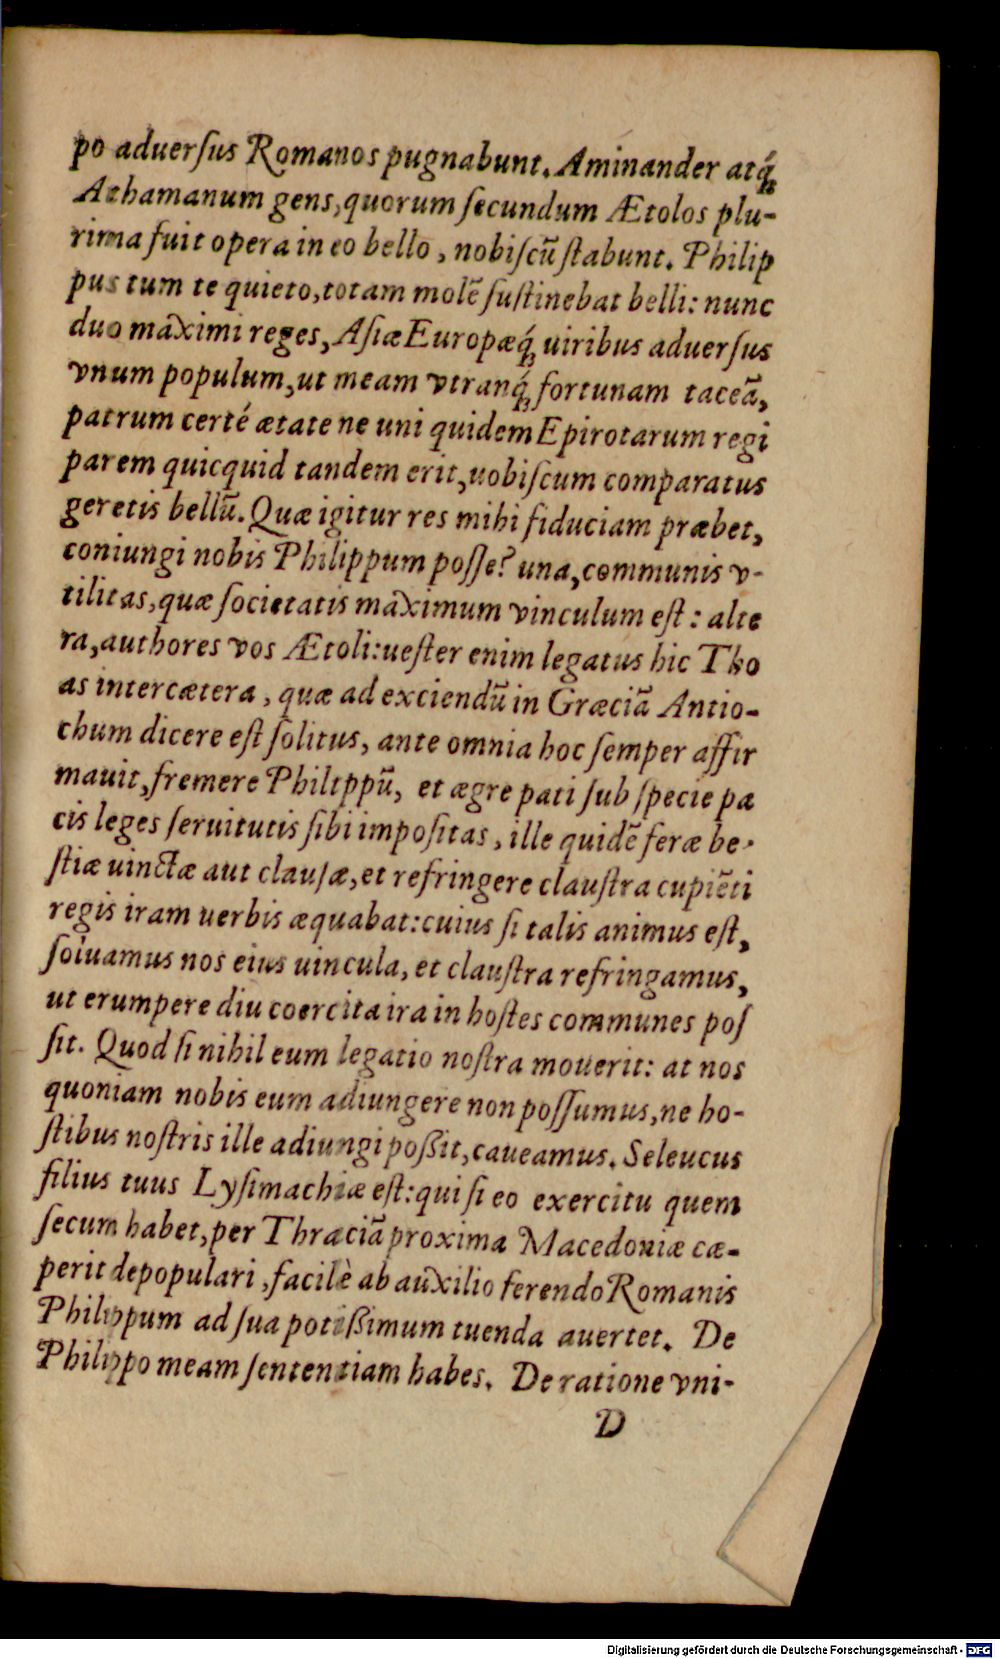 po aduerſus Romanos pugnabunt. Aminander atq́;
Athamanum gens, quorum ſecundum Ætolos plu-
rima fuit opera in eo bello, nobiſcū ſtabunt. Philip
pus tum te quieto, totam molē ſuſtinebat belli: nunc
duo maximi reges, Aſiæ Europæq́; uiribus aduerſus
vnum populum, ut meam vtranq́; fortunam taceā,
patrum certé ætate ne uni quidem Epirotarum regi
parem quicquid tandem erit, uobiſcum comparatus
geretis bellū. Quæ igitur res mihi fiduciam præbet,
coniungi nobis Philippum poſſe? una, communis v-
tilitas, quæ ſocietatis maximum vinculum eſt: alte
ra, authores vos Ætoli: ueſter enim legatus hic Tho
as intercætera, quæ ad exciendū in Græciā Antio-
chum dicere eſt ſolitus, ante omnia hoc ſemper affir
mauit, fremere Philippū, et ægre pati ſub ſpecie pa
cis leges ſeruitutis ſibi impoſitas, ille quidē feræ be-
ſtiæ uinctæ aut clauſæ, et refringere clauſtra cupiēti
regis iram uerbis æquabat: cuius ſi talis animus eſt,
ſoluamus nos eius uincula, et clauſtra refringamus,
ut erumpere diu coercita ira in hoſtes communes poſ
ſit. Quod ſi nihil eum legatio noſtra mouerit: at nos
quoniam nobis eum adiungere non poſſumus, ne ho-
ſtibus noſtris ille adiungi poßit, caueamus. Seleucus
filius tuus Lyſimachiæ eſt: qui ſi eo exercitu quem
ſecum habet, per Thraciā proxima Macedoniæ cæ-
perit depopulari, facilè ab auxilio ferendo Romanis
Philippum ad ſua potißimum tuenda auertet. De
Philippo meam ſententiam habes. De ratione vni-
D
Digitalisierung gefördert durch die Deutsche Forschungsgemeinschaft - DFG